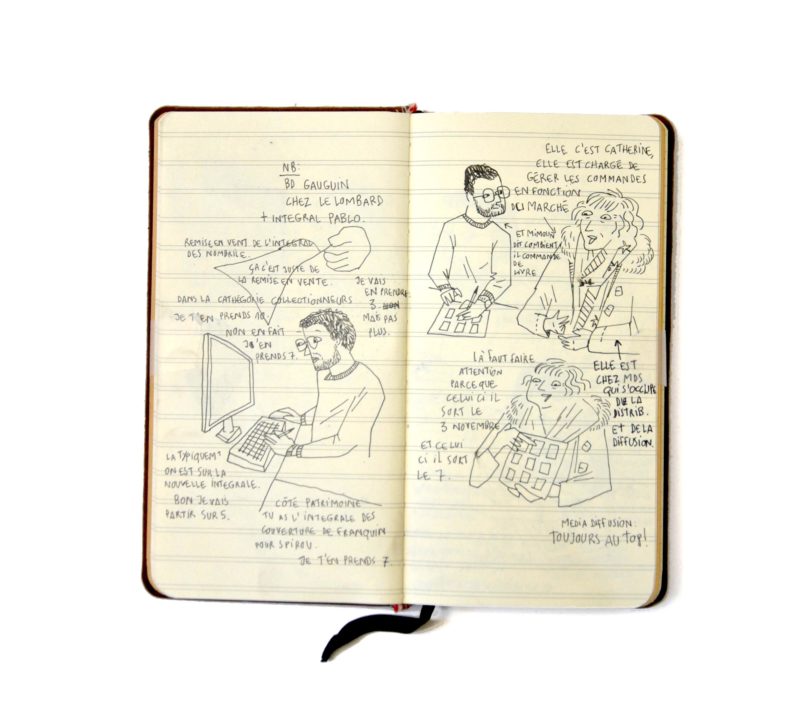 NB:
BD GAUGUIN
CHEZ LE LOMBARD
+ INTEGRAL PABLO.
REMISE EN VENT DE L'INTEGRAL
DES NOMBRILS.
ÇA C'EST JUSTE DE
LA REMISE EN VENTE.
DANS LA CATHÉGORIE COLLECTIONNEURS
JE T'EN PRENDS 10.
NON EN FAIT
J'EN
PRENDS 7.
JE VAIS
EN PRENDRE
3
MAIS PAS
PLUS.
LA TYPIQUEMT
ON EST SUR LA
NOUVELLE INTEGRALE.
BON JE VAIS
PARTIR SUR 5.
CÔTÉ PATRIMOINE
TU AS L'INTEGRALE DES
COUVERTURE DE FRANQUIN
POUR SPIROU.
JE T'EN PRENDS 7
ELLE C'EST CATHERINE,
ELLE EST CHARGÉ DE
GÉRER LES COMMANDES
EN FONCTION
DES MARCHÉ
ET MIMOUN
DIT COMBIENT
IL COMMANDE
DE
LIVRE
ELLE EST
CHEZ MDS
QUI S'OCCUPE
DE LA
DISTRIB.
ET DE LA
DIFFUSION.
LÀ FAUT FAIRE
ATTENTION
PARCE QUE
CELUI CI IL
SORT LE
3 NOVEMBRE
ET CELUI
CI IL SORT
LE 7.
MEDIA DIFFUSION:
TOUJOURS AU TOP!